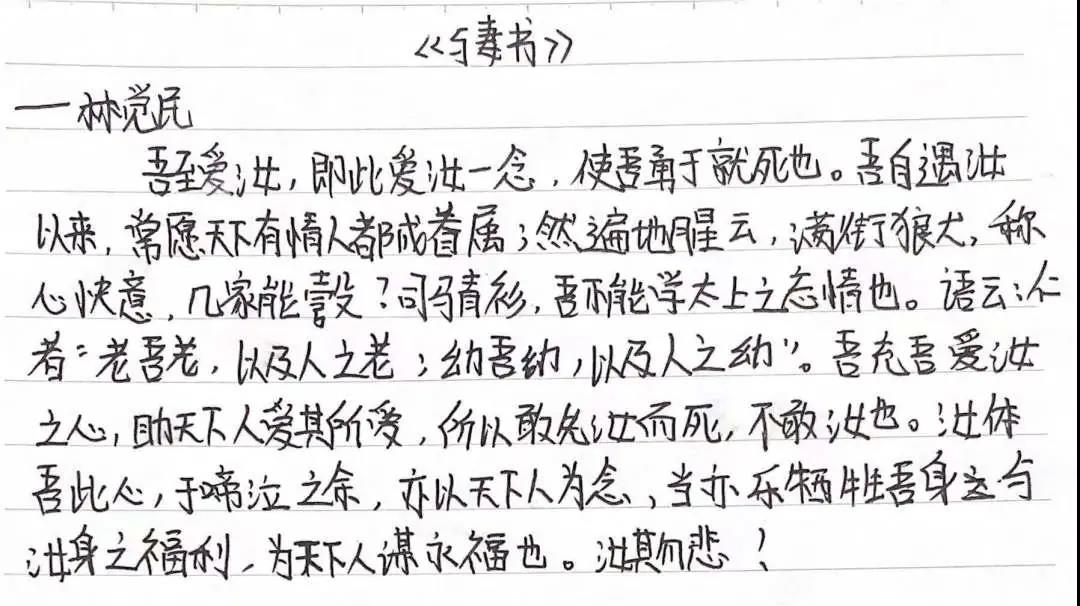 《与妻书》
—林觉民
吾至爱汝，即此爱汝一念，使吾勇于就死也。吾自遇汝
以来，常愿天下有情人都成眷属；然遍地腥云，满街狼犬，称
心快意，几家能彀？司马青衫，吾不能学太上之态情也。语云：仁
者“老吾老，以及人之老；幼吾幼，以及人之幼”。吾充吾爱汝
之心，助天下人爱其所爱，所以敢先汝而死，不敢汝也。汝体
吾此心，于啼泣之余，亦以天下人为念，当亦乐牺牲吾身之与
汝身之福利，为天下人谋永福也。汝其勿悲！